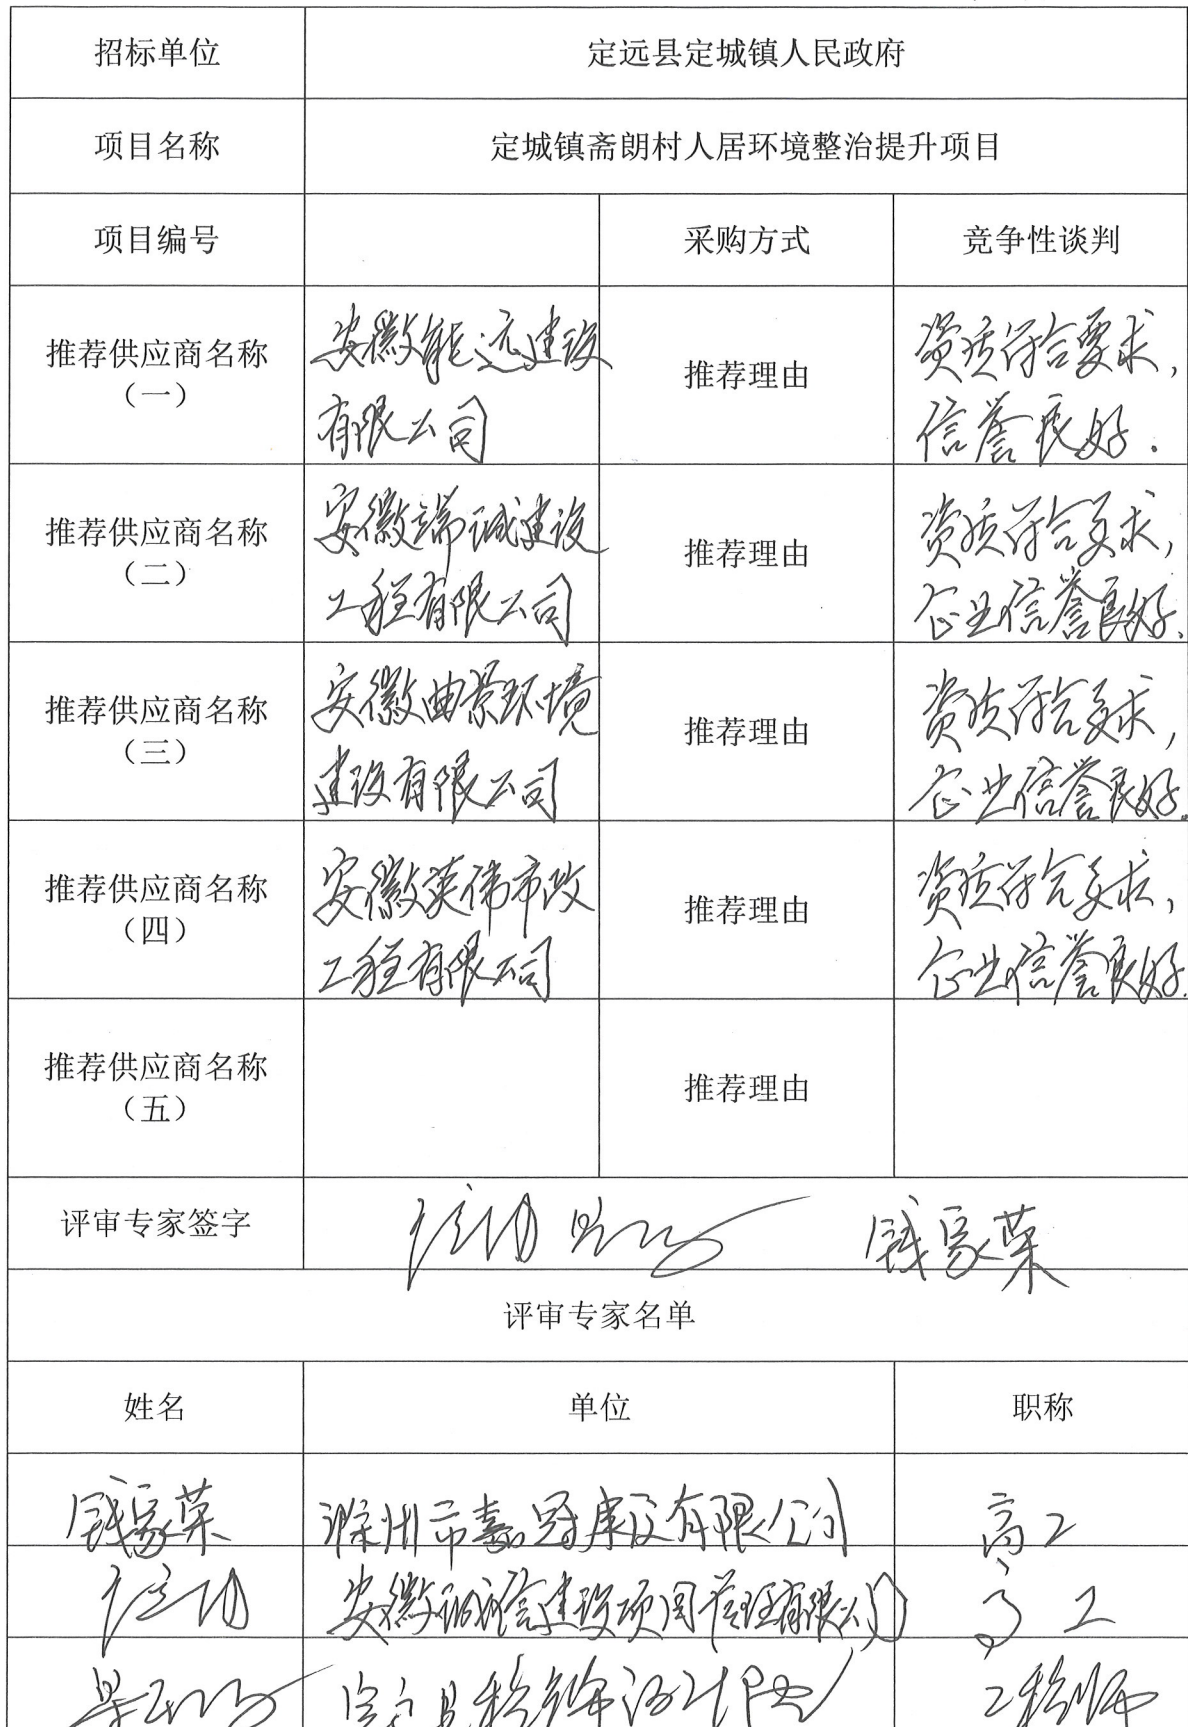 招标单位 定远县定城镇人民政府
项目名称 定城镇斋朗村人居环境整治提升项目
项目编号 采购方式 竞争性谈判
推荐供应商名称
（一）
安徽能远建设
有限公司
推荐理由
资质符合要求，
信誉良好.
推荐供应商名称
（二）
安徽端诚建设
工程有限公司
推荐理由
资质符合要求，
企业信誉良好.
推荐供应商名称
（三）
安徽曲景环境
建设有限公司
推荐理由
资质符合要求，
企业信誉良好.
推荐供应商名称
（四）
安徽英伟市政
工程有限公司
推荐理由
资质符合要求，
企业信誉良好.
推荐供应商名称
（五）
推荐理由
评审专家签字 钱家荣
评审专家名单
姓名 单位 职称
钱家荣 滁州市嘉冠建设有限公司 高工
安徽诚信建设项目管理有限公司 高工
工程师